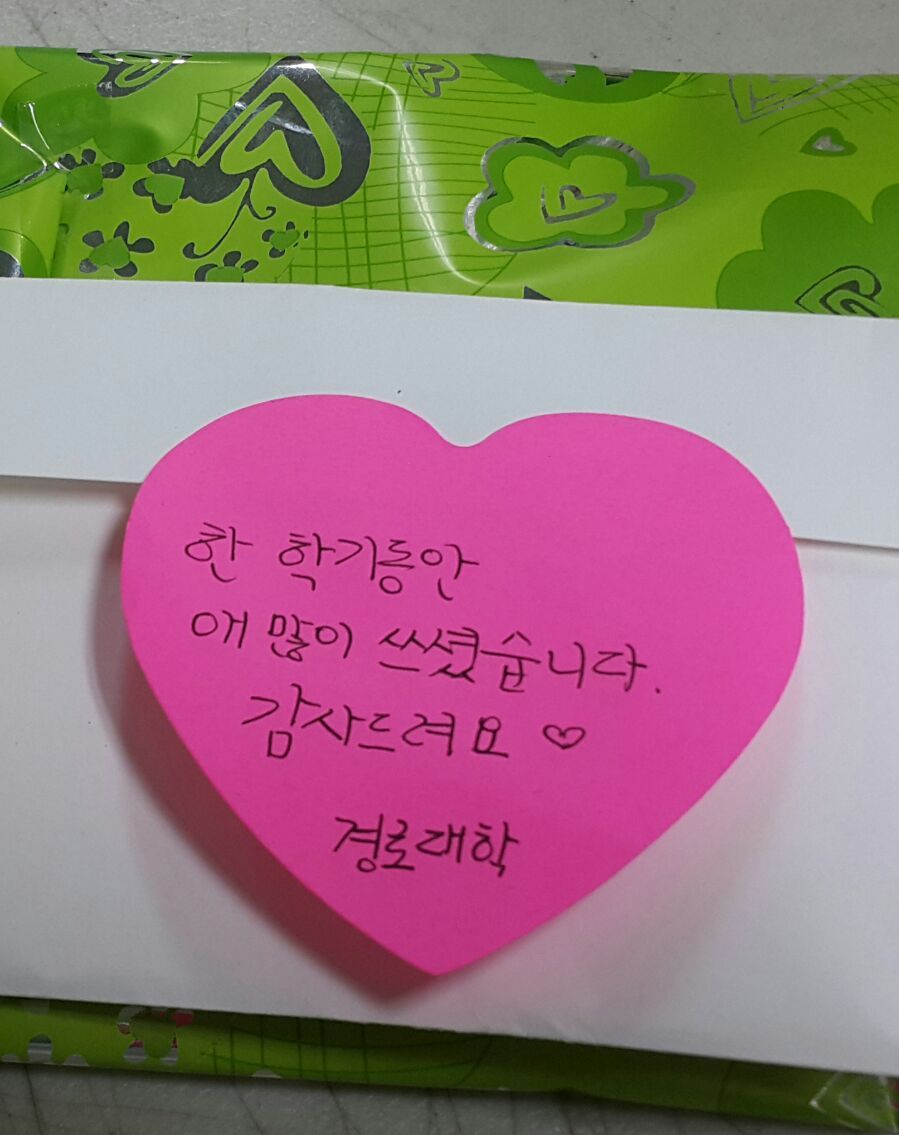 한 학기동안
애 많이 쓰셨습니다.
감사드려요 ♡
경로대학